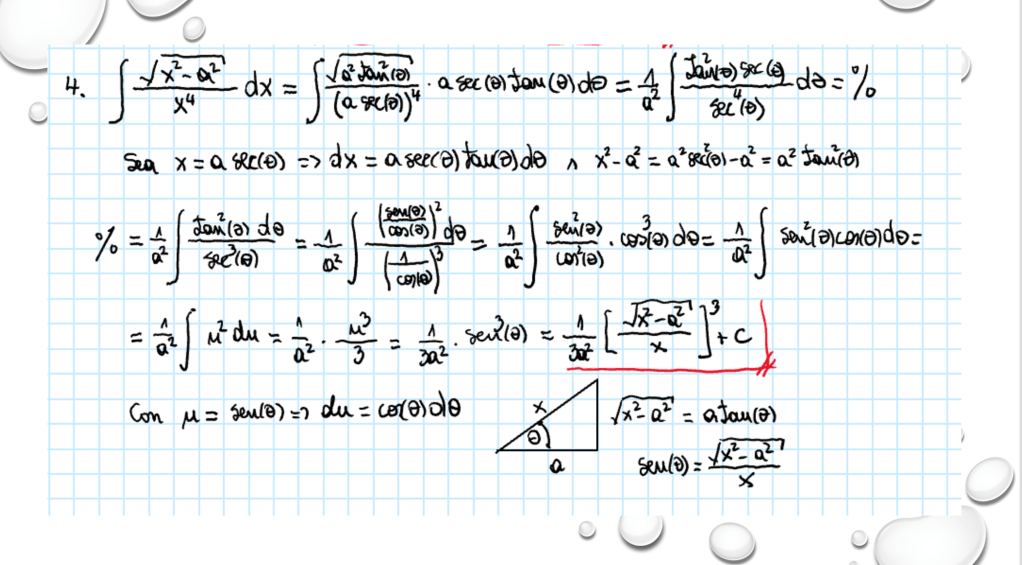 4. ∫ √(x² - a²) / x⁴ dx = ∫ √(a² tan²(θ)) / (a sec(θ))⁴ · a sec(θ) tan(θ) dθ = 1/a² ∫ tan²(θ) sec(θ) / sec⁴(θ) dθ = %
Sea x = a sec(θ) => dx = a sec(θ) tan(θ) dθ ∧ x² - a² = a² sec²(θ) - a² = a² tan²(θ)
% = 1/a² ∫ tan²(θ) dθ / sec³(θ) = 1/a² ∫ (sen(θ)/cos(θ))² / (1/cos(θ))³ dθ = 1/a² ∫ sen²(θ)/cos²(θ) · cos³(θ) dθ = 1/a² ∫ sen²(θ) cos(θ) dθ =
= 1/a² ∫ μ² du = 1/a² · μ³/3 = 1/3a² · sen³(θ) = 1/3a² [√(x² - a²) / x]³ + C
Con μ = sen(θ) => du = cos(θ) dθ
x
θ
a
√(x² - a²) = a tan(θ)
sen(θ) = √(x² - a²) / x